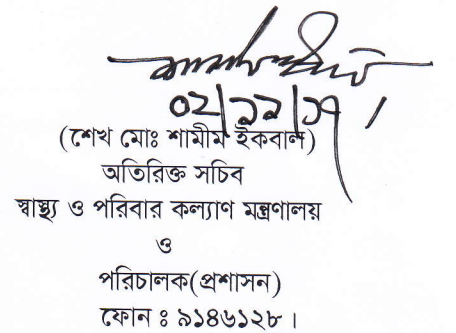 ০২/১১/১৭
(শেখ মোঃ শামীম ইকবাল)
অতিরিক্ত সচিব
স্বাস্থ্য ও পরিবার কল্যাণ মন্ত্রণালয়
ও
পরিচালক(প্রশাসন)
ফোন ঃ ৯১৪৬১২৮ ।